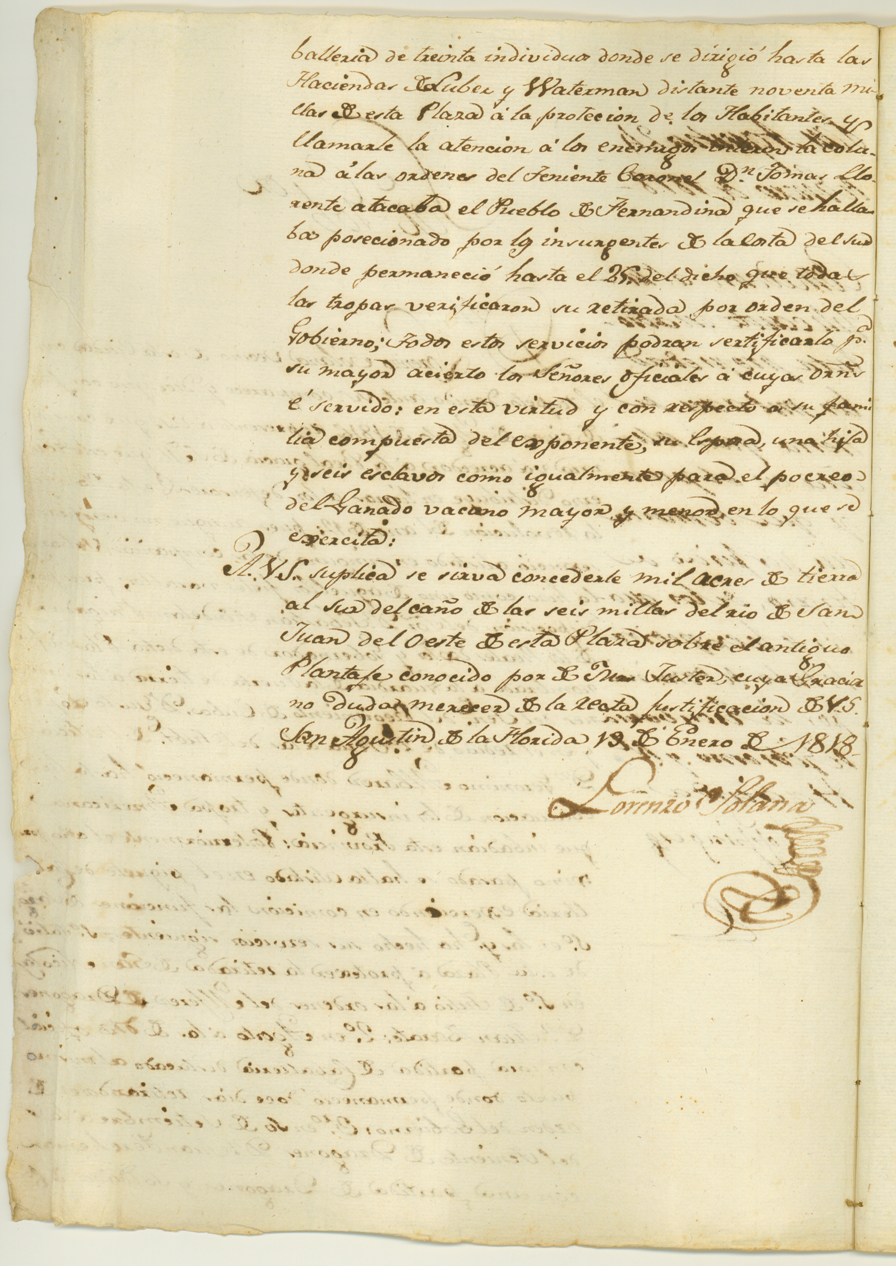 balleria de treinta individuos donde se dirigió hasta las
Haciendas de Luber y Waterman distante noventa mi-
llas de esta Plaza á la protecion de los Habitantes, y
llamarle la atencion á los enemigos la colu-
na á las ordenes del Teniente Coronel Dn. Tomas Llo-
rente atacaba el Pueblo de Fernandina que se halla-
ba posecionado por los insurgentes de la Costa del sur
donde permaneció hasta el 25 del dicho que todas
las tropas verificaron su retirada por orden del
Gobierno; todos estos servicios podran sertificarlo pa.
su mayor acierto los Señores Oficiales á cuyas ornS
é servido: en esta virtud y con respecto a su fami
lia compuesta del exponente, su Esposa, una hija
y seis esclavos como igualmente para el pocreo
del Ganado vacuno mayor y menor en lo que se
exercita:
A. V.S. suplica se sirva concederle mil acres de tierra
al sur del caño de las seis millas del rio de San
Juan del Oeste de esta Plaza sobre el antiguo
Plantaje conocido por de cuya Gracia
no duda merecer de la recta Justificacion de V.S.
San Agustin de la Florida 19 de Enero de 1818
Lorenzo Solana